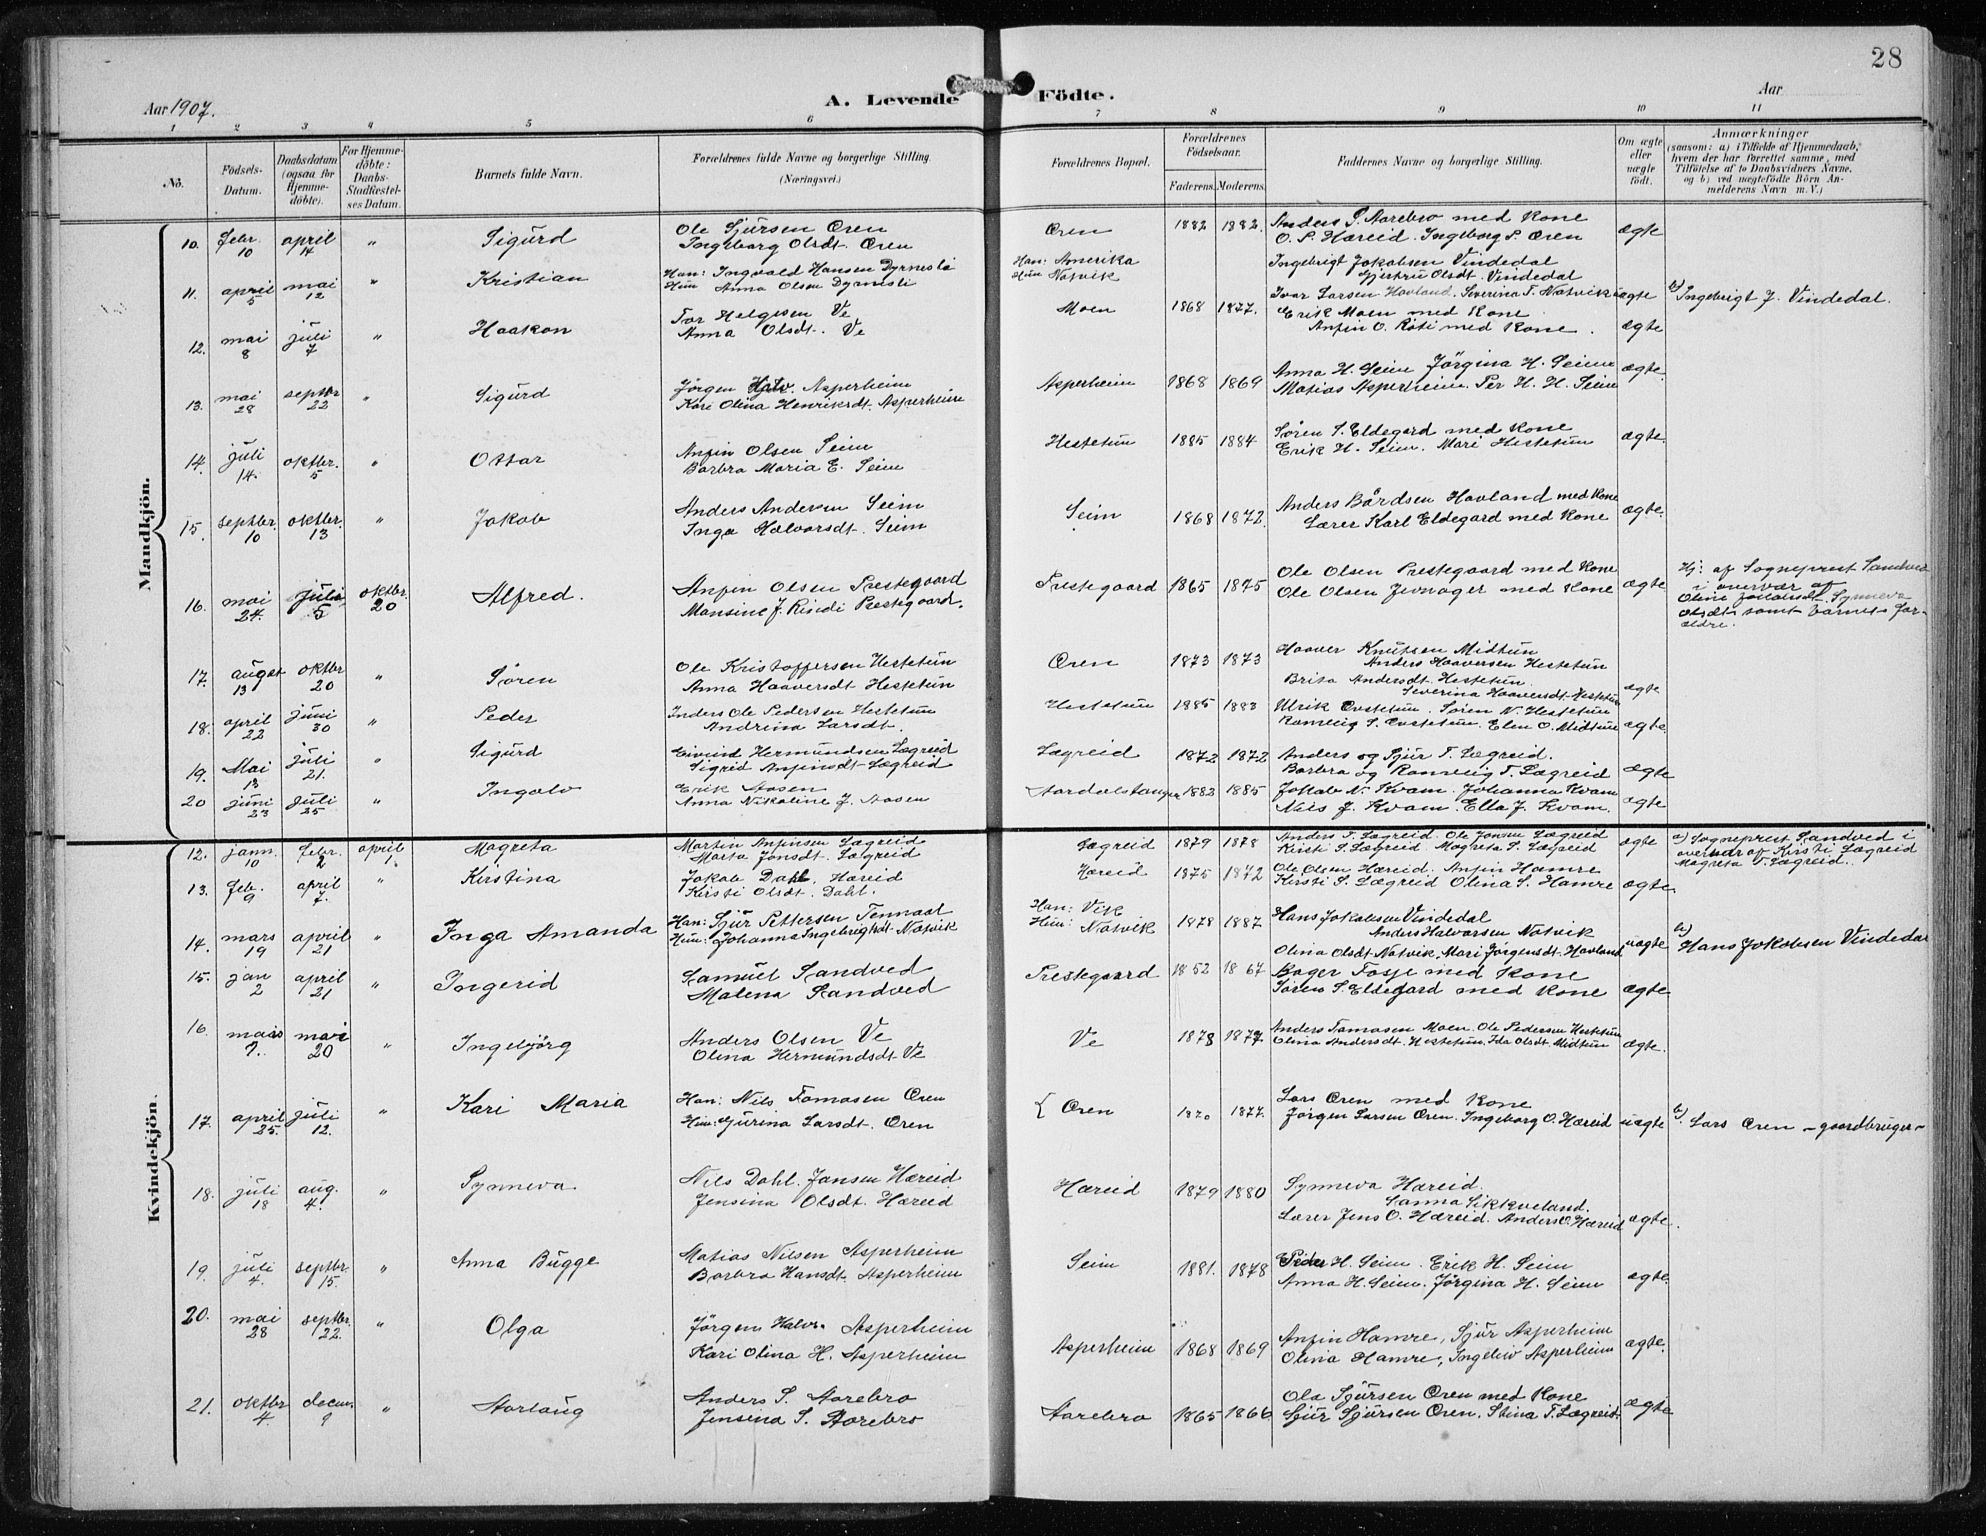 28
Aar 1907.
A. Levende Födte.
Aar
1 2 3 4 5 6 7 8 9 10 11
No.
Födsels-Datum.
Daabsdatum (ogsaa for Hjemmedöbte).
For Hjemmedöbte: Daabs-Stadfestelses Datum.
Barnets fulde Navn.
Forældrenes fulde Navne og borgerlige Stilling. (Næringsvei.)
Forældrenes Bopæl.
Forældrenes Födselsaar.
Faderens. Moderens.
Faddernes Navne og borgerlige Stilling.
Om ægte eller uægte födt.
Anmærkninger
(saasom: a) i Tilfælde af Hjemmedaab, hvem der har forrettet samme, med Tilföielse af to Daabsvidners Navne, og b) ved uægtefödte Börn Anmelderens Navn m. V.)
Mandkjön.
10. febr. 10 april 14 " Sigurd Ole Sjursen Øren Ingeborg Olsdt. Øren Øren 1882 1882. Anders S. Aarebro med Kone O. P. Hæreid. Ingeborg S. Øren ægte
11. april 5 mai 12 " Kristian Han: Ingvald Hansen Dyrnesli Hun Anna Olsen Dyrnesli Han: Amerika Hun Natvik Ingebrigt Jakobsen Vindedal Gjertru Olsdt. Vindedal Ivar Larsen Hovland. Severina T. Natvik uægte b) Ingebrigt J. Vindedal.
12. mai 8 juli 7 " Haakon Tor Helgesen Ve Anna Olsdt. Ve Moen 1868 1877. Erik Moen med Kone Anfin O. Röti med Kone. ægte
13. mai 28 septbr 22 " Sigurd Jörgen Halv. Asperheim Kari Olina Henriksdt. Asperheim Asperheim 1868 1869 Anna H. Seim Jörgina H. Seim Matias Asperheim. Per H. H. Seim ægte.
14. juli 14. oktbr. 5 " Ottar Anfin Olsen Seim Barbra Maria E. Seim Hestetun 1885 1884 Søren S. Eldegard med Kone Erik H. Seim. Mari Hestetun ægte.
15. septbr. 10 oktbr. 13 " Jakob Anders Andersen Seim Inga Halvorsdt. Seim Seim 1868 1872. Anders Bårdsen Hovland med Kone Lærer Karl Eldegard med Kone ægte.
16. mai 24. juli 5 oktbr. 20 Alfred. Anfin Olsen Prestegaard Mansine J. Prestegaard. Prestegaard 1865 1875 Ole Olsen Prestegaard med Kone Ole Olsen Jevnager med Kone ægte Hj: af Sogneprest Sandved i overvær af Synneva Olsdt samt barnets forældre.
17. august 13 oktbr 20 " Søren Ole Kristoffersen Hestetun Anna Haaversdt Hestetun Øren 1873 1873 Haaver Knutsen Midtun Anders Haaversen Hestetun Brita Andersdt. Hestetun. Severina Haaversdt. Hestetun ægte
18. april 22 juni 30 " Peder Ole Pedersen Hestetun Andrina Larsdt. Hestetun 1885 1883 Ulrik Søren N. Hestetun Elen O. Midtun ægte
19. Mai 13 juli 21. " Sigurd Eivind Hermundsen Lægreid Sigrid Anfinsdt. Lægreid Lægreid 1872 1872 Anders og Sjur T. Lægreid. Barbra og Rannveig T. Lægreid ægte
20 juni 23 juli 25 " Ingolv Erik Aasen Anna Nikoline J. Aasen Aardalstangen 1883 1885 Jakob N. Kvam. Johanna Kvam Nils J. Kvam. Ella J. Kvam. ægte
Kvindekjön.
12. jann. 10 febr. 2 april 1. Magreta Martin Anfinsen Lægreid Marta Jonsdt. Lægreid Lægreid 1879 1878 Anders T. Lægreid. Ole Jonsen Lægreid Kirsti S. Lægreid Magreta S. Lægreid ægte a) Sogneprest Sandved i overvær af Kirsti Lægreid Magreta T. Lægreid.
13. feb. 9 april 7. " Kirstina Jakob Dahl. Hæreid Kirsti Olsdt. Dahl. Hæreid 1875 1872 Ole Olsen Hæreid. Anfin Hamre Kirsti S. Lægreid Olina S. Hamre ægte
14. mars 19 april 21 " Inga Amanda Han: Sjur Pettersen Tennaal Hun: Johanna Ingebrigtsdt. Natvik Han: Vik Hun: Natvik 1878 1887 Hans Jakobsen Vindedal Anders Halvorsen Natvik Olina Olsdt Natvik, Mari Jörgensdt. Hovland uægte b) Hans Jakobsen Vindedal
15. jan 2 april 21 " Ingerid Samuel Sandved Malena Sandved Prestegaard 1852 1867 Bager Fosje med Kone Søren S. Eldegard med Kone ægte
16. mars 7. mai 20 " Ingebjörg Anders Olsen Ve Olina Hermundsdt Ve Ve 1878 1877 Anders Tomasen Moen. Ole Pedersen Hestetun Olina Andersdt. Hestetun. Ida Olsdt. Midtun ægte.
17. april 25. juli 12. " Kari Maria Han: Nils Tomasen Øren Hun: Gjurina Larsdt. Øren { Øren 1870 1877. Lars Øren med Kone Jörgen Larsen Øren. Ingeborg O. Hæreid uægte b) Lars Øren - gaardbruger -
18. juli 18 aug. 4. " Synneva Nils Dahl. Jansen Hæreid Jensina Olsdt. Hæreid Hæreid 1879 1880 Synneva Hæreid. Sanna Sikkveland. Lærer Jens O. Hæreid. Anders O. Hæreid ægte.
19. juli 4. septbr. 15. " Anna Bugge Matias Nilsen Asperheim Barbro Hansdt. Asperheim Seim 1881. 1878 Peder H. Seim. Erik H. Seim Anna H. Seim. Jörgina H. Seim ægte.
20. mai 28 septbr. 22. " Olga Jörgen Halv. Asperheim Kari Olina H. Asperheim Asperheim 1868 1869 Anfin Hamre, Sjur Asperheim Olina Hamre, Asperheim ægte.
21. oktbr 4 decem. 9 " Aarlaug Anders S. Aarebro Jensina S. Aarebro Aarebro 1865 1866 Ola Sjursen Øren med Kone Sjur Sjursen Øren. Stina T. Lægreid. ægte